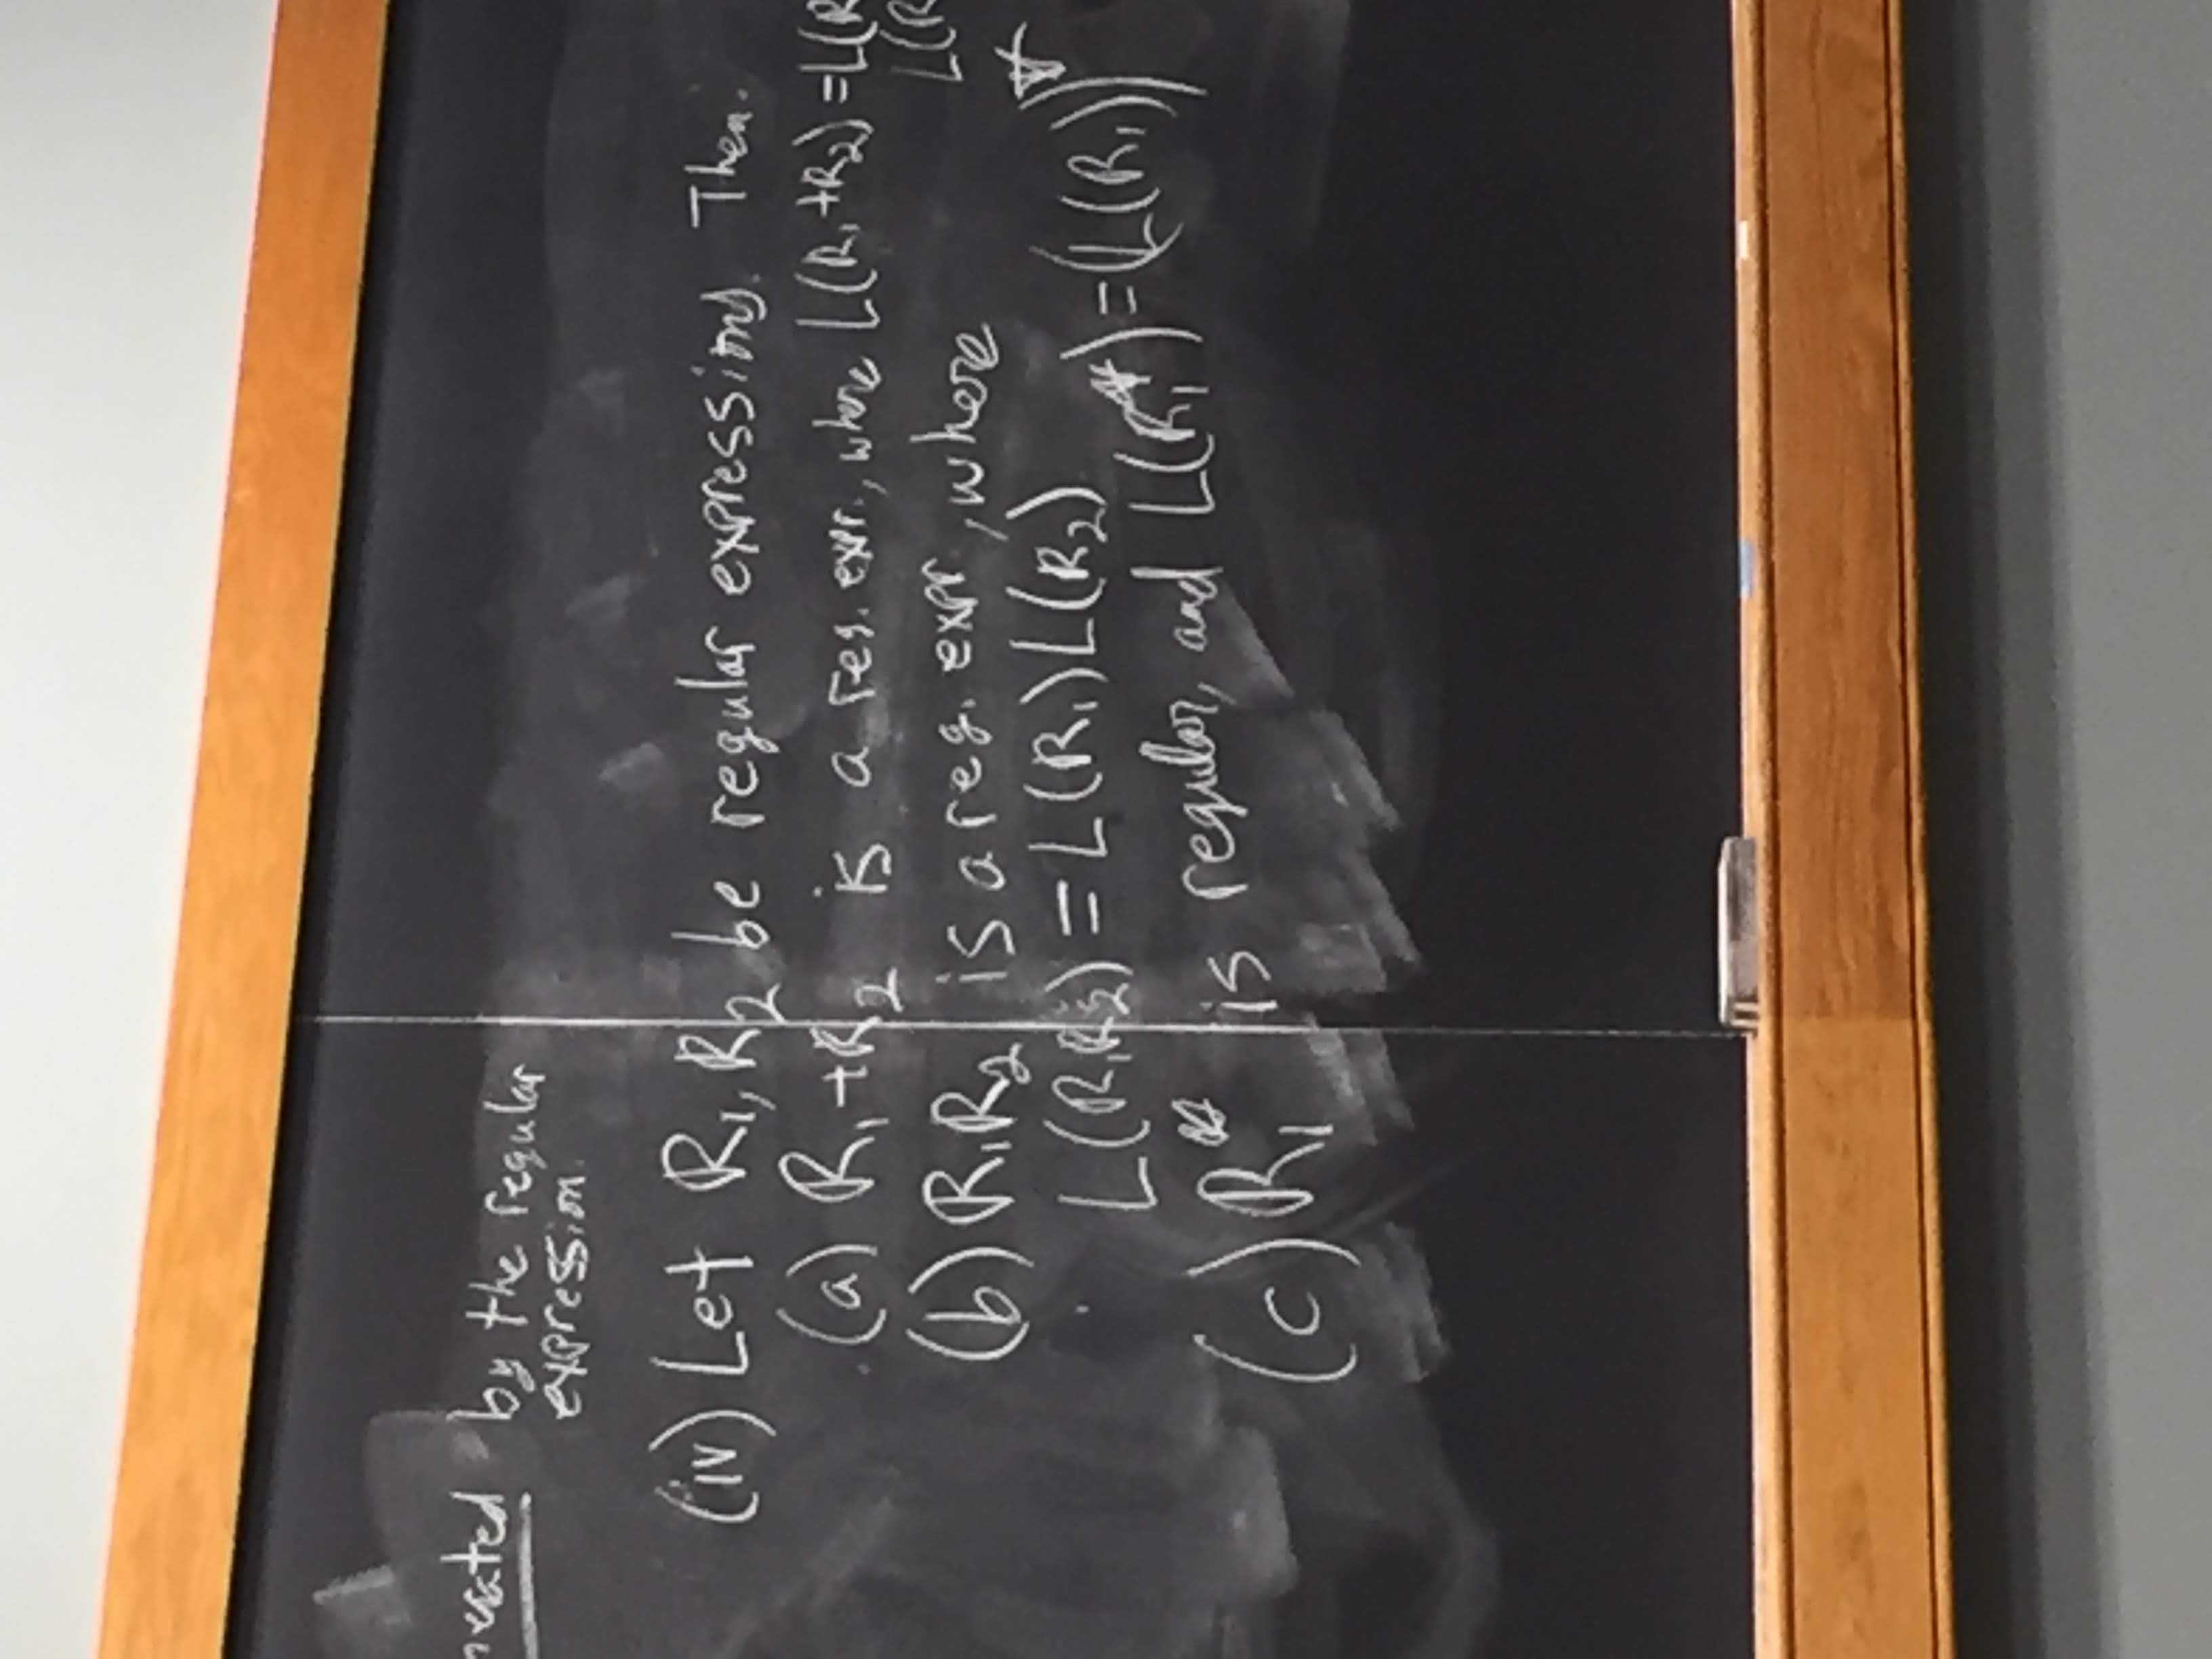 nerated by the regular
expression.
(iv) Let R₁, R₂ be regular expressions. Then:
(a) R₁+R₂ is a reg. expr., where L(R₁+R₂)=L(R
L(R
(b) R₁R₂ is a reg. expr., where
L(R₁R₂) = L(R₁)L(R₂)
(c) R₁* is regular, and L(R₁*)=(L(R₁))*